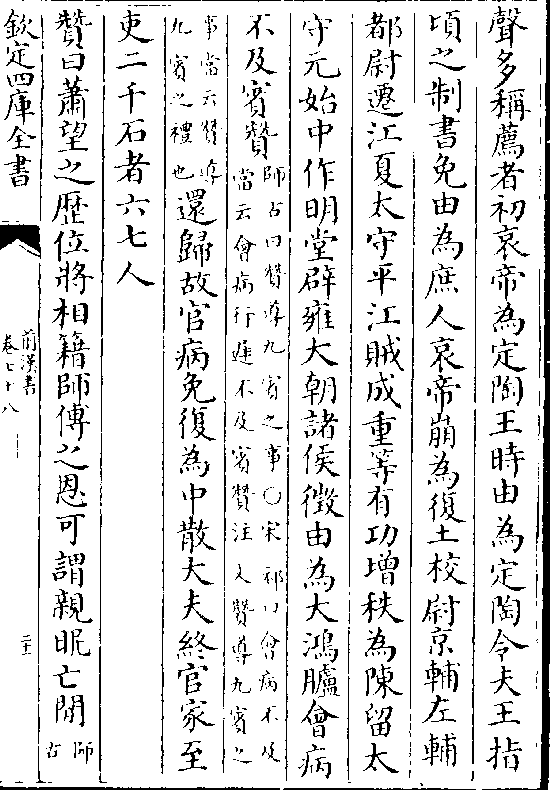 聲多稱薦者初哀帝為定陶王時由為定陶令失王指
頃之制書免由為庶人哀帝崩為復土校尉京輔左輔
都尉遷江夏太守平江賊成重等有功增秩為陳留太
守元始中作明堂辟雍大朝諸侯徴由為大鴻臚會病
不及賓贊師古曰贊導九賓之事○宋祁曰會病不及
當云會病行遲不及賓贊注文贊導九賓之
事當云贊導
九賓之禮也還歸故官病免復為中散大夫終官家至
吏二千石者六七人
贊曰蕭望之歴位將相籍師傅之恩可謂親昵亡間師
古
欽定四庫全書
前漢書
卷七十八
二十五